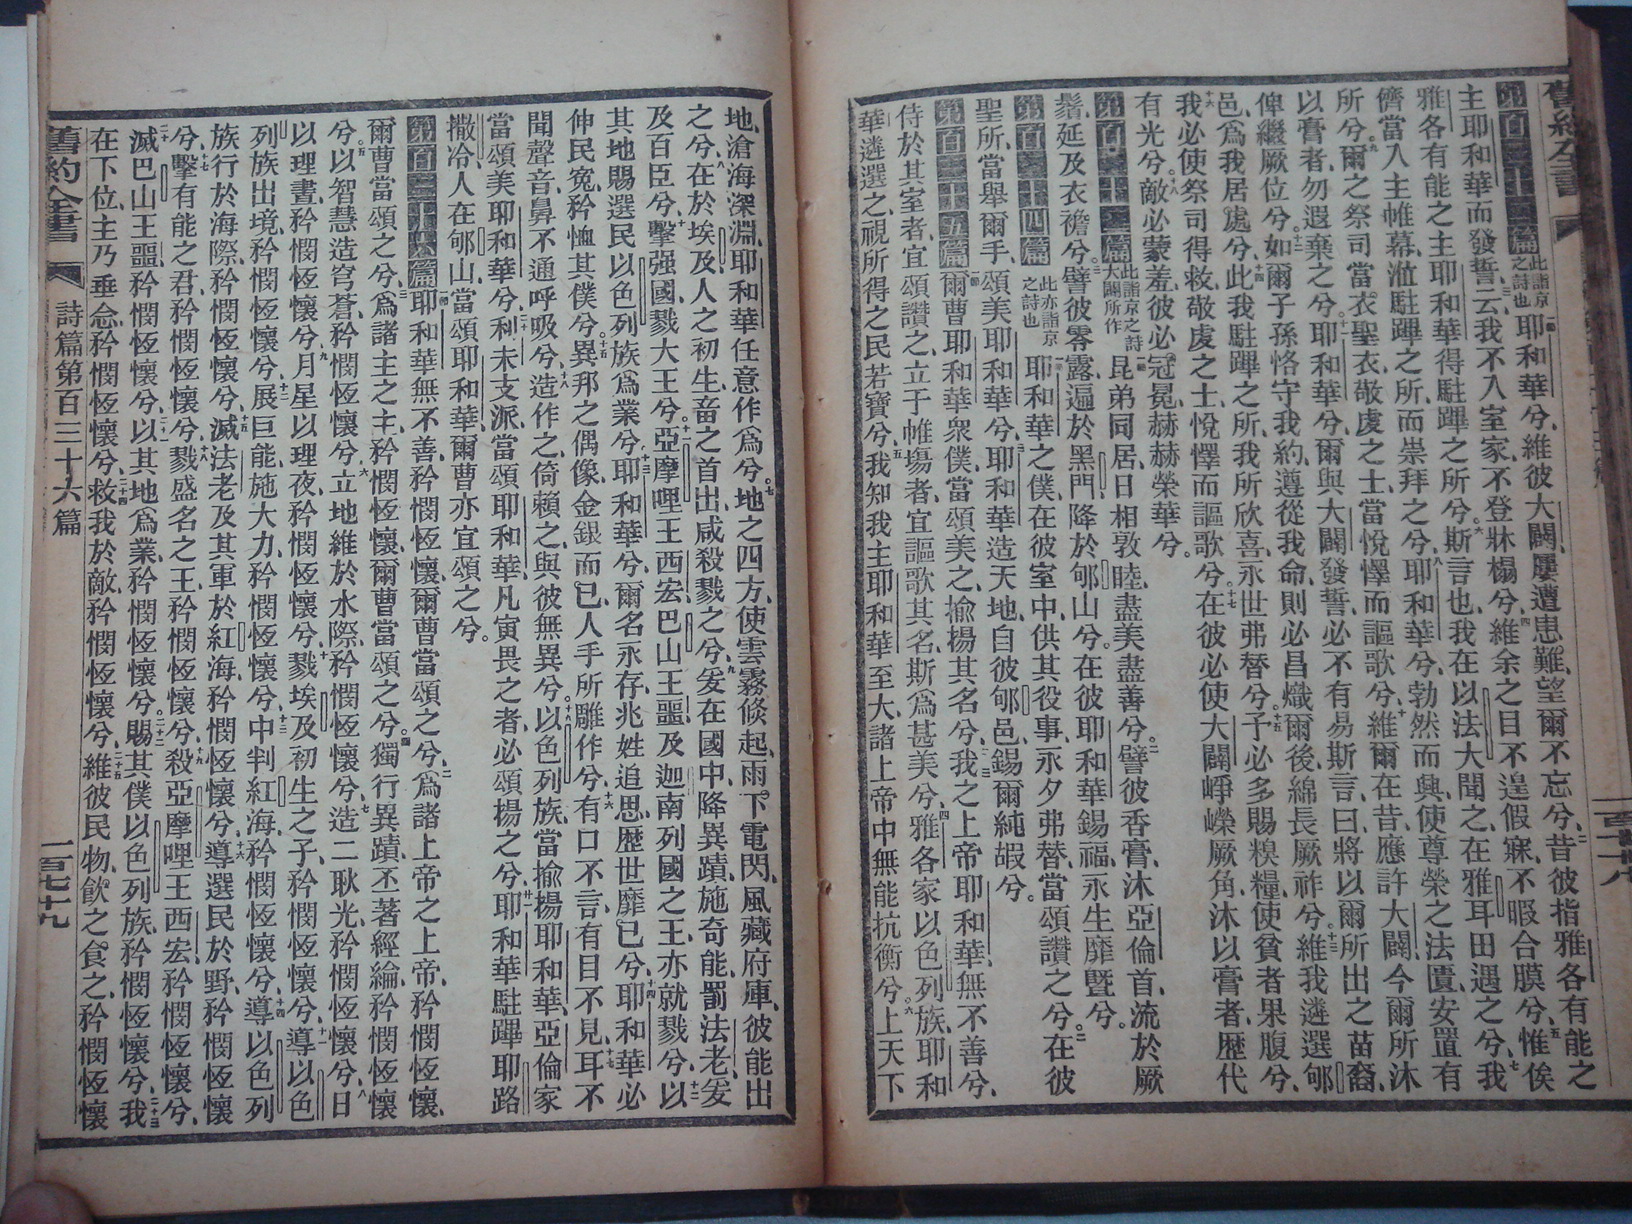 第百三十二篇 此詣京之詩也 一節耶和華兮、維彼大闢、屢遭患難、望爾不忘兮、二昔彼指雅各有能之
主耶和華而發誓、三云、我不入室家、不登牀榻兮、四維余之目不遑假寐、不暇合膜兮、五惟俟
雅各有能之主耶和華、得駐蹕之所兮、六斯言也、我在以法大聞之、在雅耳田遇之兮、七我
儕當入主帷幕、涖駐蹕之所、而崇拜之兮、八耶和華兮、勃然而興、使尊榮之法匱、安置有
所兮、九爾之祭司當衣聖衣、敬虔之士、當悅懌而謳歌兮、十維爾在昔應許大闢、今爾所沐
以膏者、勿遐棄之兮、十一耶和華兮、爾與大闢發誓、必不有易斯言、曰、將以爾所出之苗裔、
俾繼厥位兮、十二如爾子孫恪守我約、遵從我命、則必昌熾爾後、綿長厥祚兮、十三維我遴選郇
邑、爲我居處兮、十四此我駐蹕之所、我所欣喜、永世弗替兮、十五予必多賜糗糧、使貧者果腹兮、
十六我必使祭司得救、敬虔之士、悅懌而謳歌兮、十七在彼必使大闢崢嶸厥角、沐以膏者、歷代
有光兮、十八敵必蒙羞、彼必冠冕、赫赫榮華兮。
第百三十三篇 此詣京之詩大闢所作 一節昆弟同居、日相敦睦、盡美盡善兮、二譬彼香膏、沐亞倫首、流於厥
鬚、延及衣襜兮、三譬彼零露、遍於黑門、降於郇山兮、在彼耶和華錫福、永生靡曁兮。
第百三十四篇 此亦詣京之詩也 一節耶和華之僕、在彼室中、供其役事、永夕弗替、當頌讚之兮、二在彼
聖所、當舉爾手、頌美耶和華兮、三耶和華造天地、自彼郇邑、錫爾純嘏兮。
第百三十五篇 一節爾曹耶和華衆僕、當頌美之、揄揚其名兮、二三我之上帝耶和華、無不善兮、
侍於其室者、宜頌讚之、立于帷場者、宜謳歌其名、斯爲甚美兮、四雅各家以色列族、耶和
華遴選之、視所得之民若寶兮、五我知我主耶和華至大、諸上帝中無能抗衡兮。六上天下
地、滄海深淵、耶和華任意作爲兮。七地之四方、使雲霧倐起、雨下電閃、風藏府庫、彼能出
之兮、八在於埃及、人之初生、畜之首出、咸殺戮之兮、九爰在國中、降異蹟、施奇能、罰法老、爰
及百臣兮、十擊强國、戮大王兮、十一亞摩哩王西宏、巴山王噩、及迦南列國之王、亦就戮兮、十二以
其地賜選民以色列族爲業兮、十三耶和華兮、爾名永存、兆姓追思、歷世靡已兮、十四耶和華必
伸民寃、矜恤其僕兮。十五異邦之偶像、金銀而已、人手所雕作兮、十六有口不言、有目不見、十七耳不
聞聲音、鼻不通呼吸兮、十八造作之、倚賴之、與彼無異兮。十九以色列族、當揄揚耶和華、亞倫家
當頌美耶和華兮、二十利未支派、當頌耶和華、凡寅畏之者、必頌揚之兮、廿一耶和華駐蹕耶路
撒冷、人在郇山、當頌耶和華、爾曹亦宜頌之兮。
第百三十六篇 一節耶和華無不善、矜憫恆懷、爾曹當頌之兮、二爲諸上帝之上帝、矜憫恆懷、
爾曹當頌之兮、三爲諸主之主、矜憫恆懷、爾曹當頌之兮。四獨行異蹟、丕著經綸、矜憫恆懷
兮。五以智慧造穹蒼、矜憫恆懷兮、六立地維於水際、矜憫恆懷兮、七造二耿光、矜憫恆懷兮、八日
以理晝、矜憫恆懷兮、九月星以理夜、矜憫恆懷兮、十戮埃及初生之子、矜憫恆懷兮、十一導以色
列族出境、矜憫恆懷兮、十二展巨能、施大力、矜憫恆懷兮、十三中判紅海、矜憫恆懷兮、十四導以色列
族行於海際、矜憫恆懷兮、十五滅法老及其軍於紅海、矜憫恆懷兮、十六導選民於野、矜憫恆懷
兮、十七擊有能之君、矜憫恆懷兮、十八戮盛名之王、矜憫恆懷兮、十九殺亞摩哩王西宏、矜憫恆懷兮、
二十滅巴山王噩、矜憫恆懷兮、二十一以其地爲業、矜憫恆懷兮。二十二賜其僕以色列族、矜憫恆懷兮、二十三我
在下位、主乃垂念、矜憫恆懷兮、二十四救我於敵、矜憫恆懷兮、二十五維彼民物、飮之食之、矜憫恆懷
舊約全書 詩篇第百三十六篇 一百七十九